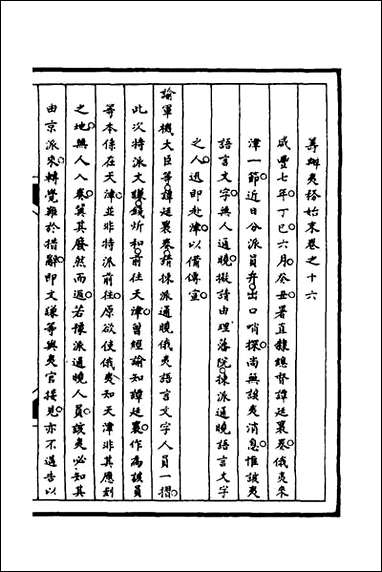 籌辦夷務始末卷之十六
咸豐七年丁巳六月癸丑。署直隸總督譚廷襄奏俄夷來
津一節近日分派員弁。出口哨探。尚無該夷消息。惟該夷
語言文字。無人通曉。擬請由理藩院。揀派通曉語言文字
之人。迅即赴津。以備傳宣。
諭軍機大臣等。譚廷襄奏。請揀派通曉俄夷語言文字人員一摺。
此次特派文謙。錢炘和。前往天津。曾經諭知譚廷襄。作為該員
等本係在天津。並非特派前往。原欲使俄夷。知天津非其應到
之地。無人入奏。冀其廢然而返。若據派通曉人員。該夷必知其
由京派來。轉覺難於措辭。即文謙等與夷官接見。亦不過告以